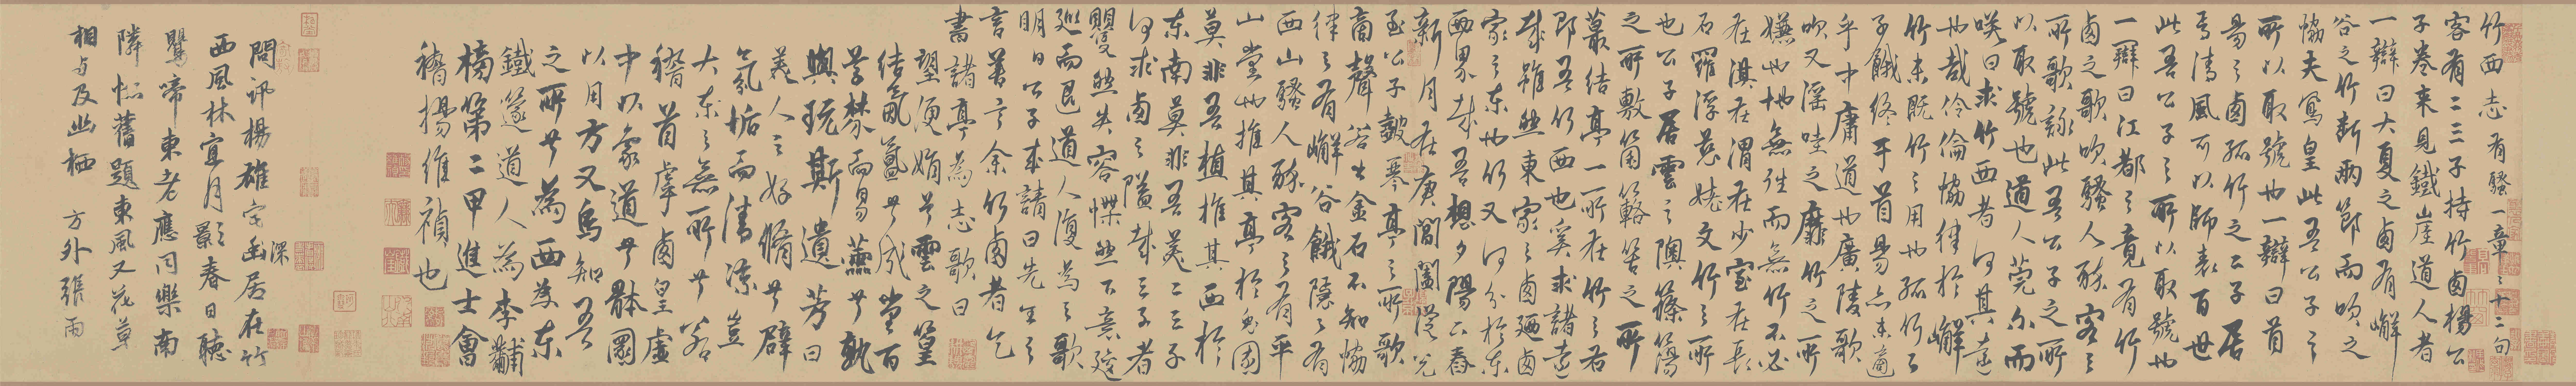 竹西志有騷一章章十二句
客有二三子持竹西楊公
子卷來見鐵崖道人者
一辯曰大夏之西有嶰
谷之竹斷兩節而吹之
協夫鳳皇此吾公子之
所以取號也一辯曰首
昜之西孤竹之二子居
焉清風可以師表百世
此吾公子之所以取號也
一辯曰江都之竟有竹
西之歌吹騷人醉客之
所歌詠此吾公子之所
以取號也道人莞尔而
咲曰求竹西者何其遠
也哉伶倫協律於嶰
竹未既竹之用也孤竹之
子餓終于首昜亦未適
乎中庸道也廣陵歌
吹又滛哇之靡竹之所
嫌也地無往而無竹不必
在淇在渭在少室在長
石羅浮慈姥文竹之所
也公子居雲之隩篠簜
之所敷箘簵笘之所
叢結亭一所在竹之右
即吾竹西也奚求諸遠
哉雖然東家之西乃西
家之東也竹又何分於東
西界哉吾想夕陽下舂
新月在庚閶闔從兌
至公子鼓琴亭之所歌
商聲若出金石不知協
律之有嶰谷餓隱之有
西山騷人醉客之有平
山堂也推其亭於兔園
莫非吾植推其西於
東南莫非吾美二三子
何求西之隘哉三子者
矍然失容慄然下意逡
巡而退道人復為之歌
明日公子來請曰先生之
言善言余竹西者乞
書諸亭為志歌曰
望便娟兮雲之篁
結氤氳兮成堂百
草棼而易蕪兮孰
與玩斯遺芳曰
美人之好脩兮辟
氛垢而清涼豈
大東之無所兮若
稽首虖西皇虛
中以象道兮體圓
以用方又烏知吾
之所兮為西為東
鐵篴道人為李黼
榜第二甲進士會
稽揚維禎也
問訊楊雄宅幽深居在竹
西風林宜月影春日聽
鸎啼東老應同樂南
隣愜舊題東風又花草
相与及幽栖 方外張雨